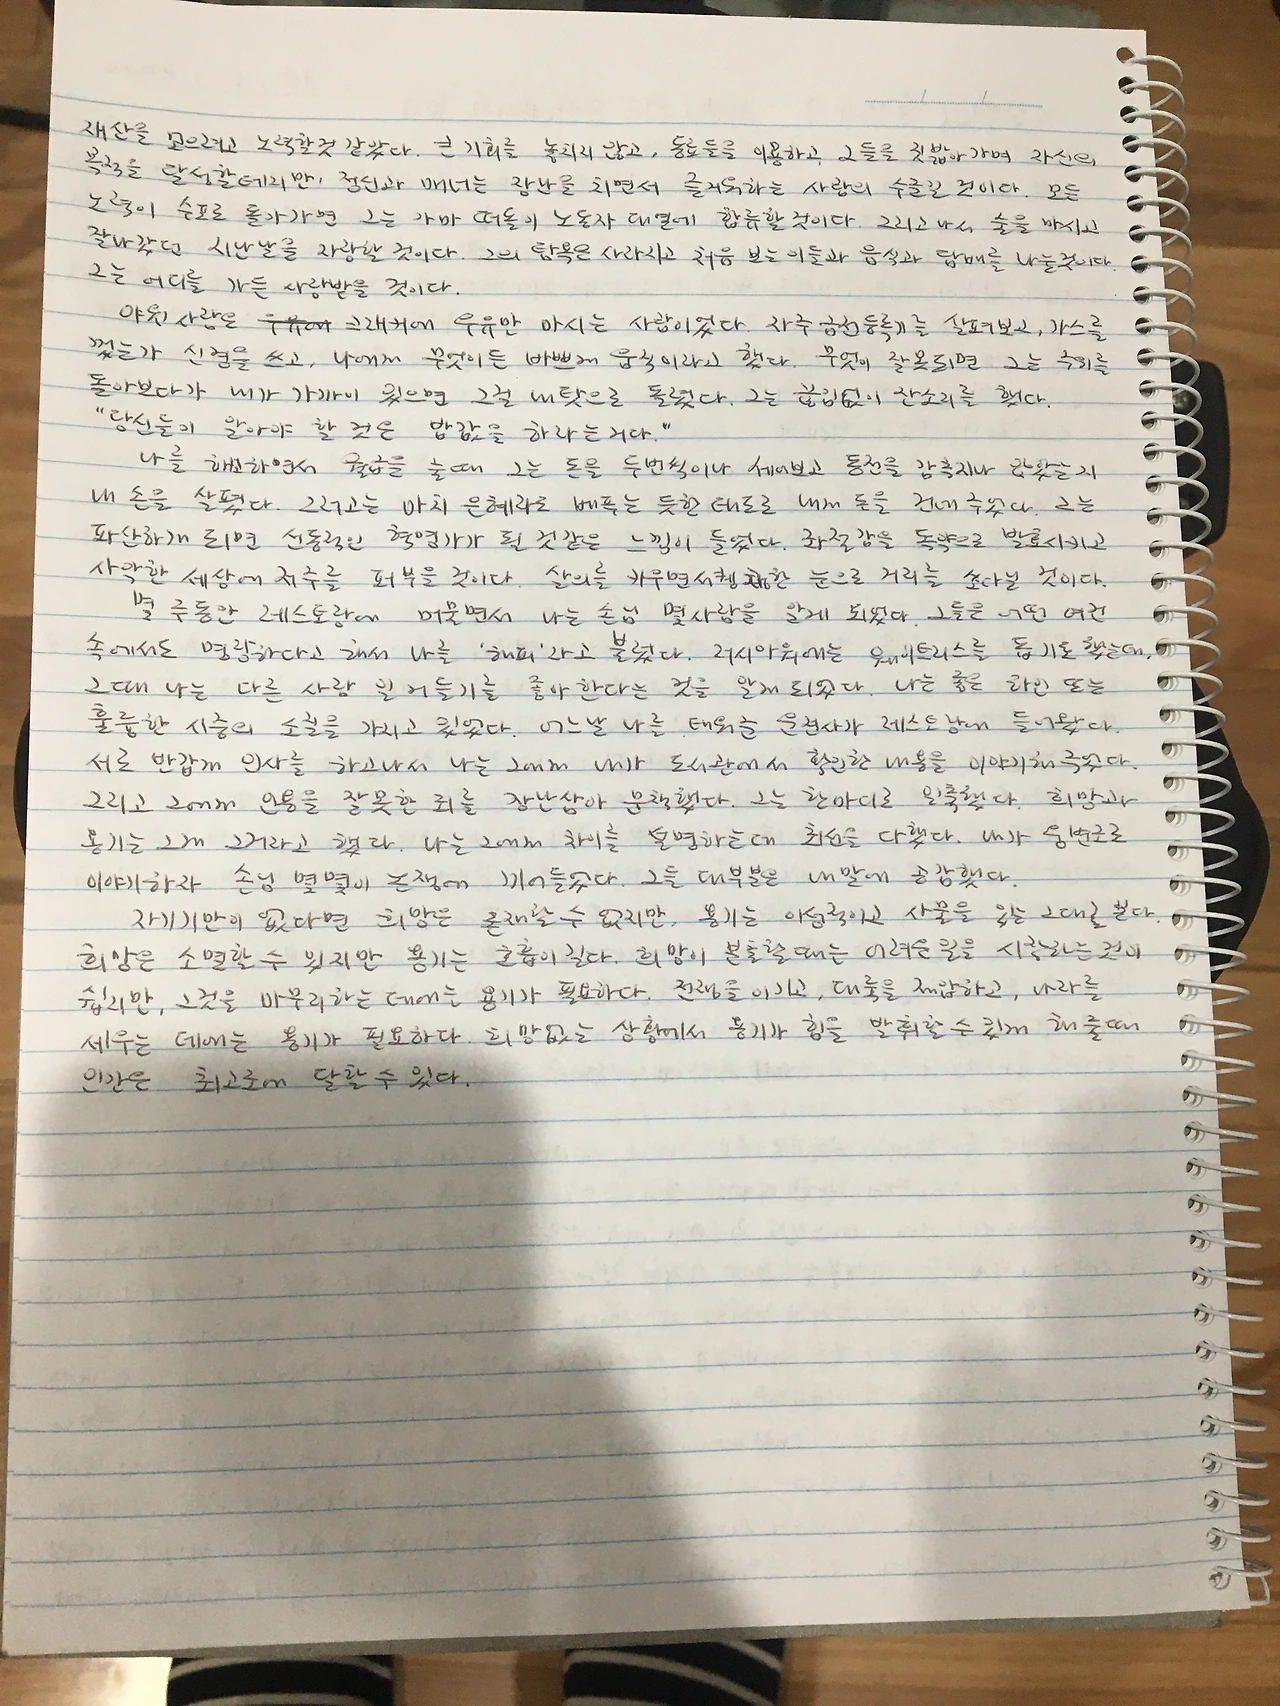 재산을 모으려고 노력할것 같았다. 큰 기회를 놓치지 않고, 동료들을 이용하고 그들을 짓밟아가며 자신의
목적을 달성할테지만, 정신과 매너는 장난을 치면서 즐거워하는 사람의 수준일 것이다. 모든
노력이 수포로 돌아가면 그는 가마 떠돌이 노동자 대열에 합류할것이다. 그리고나서 술을 마시고
잘나갔던 지난날을 자랑할 것이다. 그의 탐욕은 사라지고 처음 보는이들과 음식과 담배를 나눌것이다.
그는 어디를 가든 사랑받을 것이다.
야윈 사람은 크래커에 우유만 마시는 사람이었다. 자주 금전등록기를 살펴보고, 가스를
껐는가 신경을 쓰고, 나에게 무엇이든 바쁘게 움직이라고 했다. 무엇이 잘못되면 그는 주위를
돌아보다가 내가 가까이 있으면 그걸 내탓으로 돌렸다. 그는 끊임없이 잔소리를 했다.
"당신들이 알아야 할 것은 밥값을 하라는거다."
나를 해고하면서 급급을 줄때 그는 돈을 두번씩이나 세어보고 동전을 감추지나 않았는지
내 손을 살폈다. 그러고는 마치 은혜라도 베푸는 듯한 태도로 내게 돈을 건네주었다. 그는
파산하게 되면 선동적인 혁명가가 될 것같은 느낌이 들었다. 좌절감을 독약으로 발효시키고
사악한 세상에 저주를 퍼부을 것이다. 살의를 키우면서 눈으로 거리를 쏘다닐 것이다.
몇 주동안 레스토랑에 머물면서 나는 손님 몇사람을 알게 되었다. 그들은 어떤 여건
속에서도 명랑하다고 해서 나를 '해피'라고 불렀다. 러시아워에는 웨이트리스를 돕기도 했는데,
그때 나는 다른 사람 일 거들기를 좋아한다는 것을 알게 되었다. 나는 좋은 하인 또는
훌륭한 시종의 소질을 가지고 있었다. 어느날 나를 태워준 운전사가 레스토랑에 들어왔다.
서로 반갑게 인사를 하고나서 나는 그에게 내가 도서관에서 확인한 내용을 이야기해주었다.
그리고 그에게 인용을 잘못한 죄를 장난삼아 문책했다. 그는 한마디로 일축했다. 희망과
용기는 그게 그거라고 했다. 나는 그에게 차이를 설명하는데 최선을 다했다. 내가 웅변조로
이야기하자 손님 몇몇이 논쟁에 끼어들었다. 그들 대부분은 내말에 공감했다.
자기기만이 없다면 희망은 존재할 수 없지만, 용기는 이성적이고 사물을 있는 그대로 본다.
희망은 소멸할 수 있지만 용기는 호흡이 길다. 희망이 분출할때는 어려운 일을 시작하는 것이
쉽지만, 그것을 마무리하는 데에는 용기가 필요하다. 전쟁을 이기고, 대륙을 제압하고, 나라를
세우는 데에는 용기가 필요하다. 희망없는 상황에서 용기가 힘을 발휘할 수 있게 해줄때
인간은 최고조에 달할 수 있다.